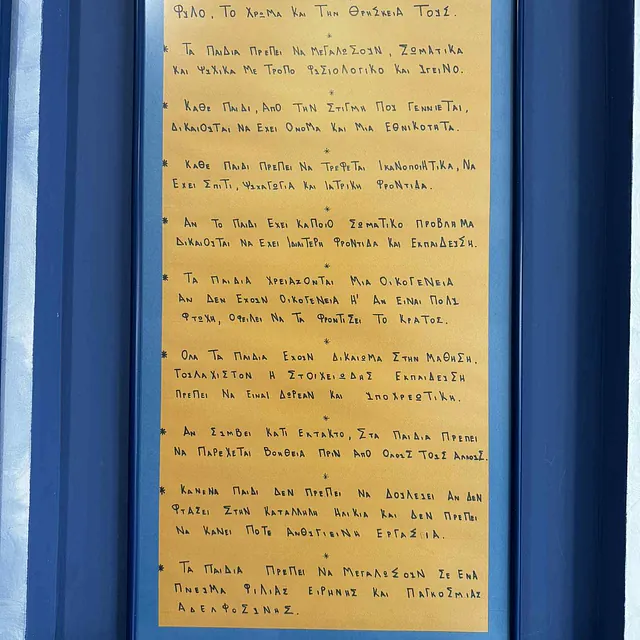 Φυλο, Το Χρωμα Και Την Θρησκεια Τους.
*
* Τα Παιδια Πρεπει Να Μεγαλωσουν, Σωματικα
Και Ψυχικα Με Τροπο Φυσιολογικο Και Υγεινο.
*
* Καθε Παιδι, Απο Την Στιγμη Που Γεννιεται,
Δικαιουται Να Εχει Ονομα Και Μια Εθνικοτητα.
*
* Καθε Παιδι Πρεπει Να Τρεφεται Ικανοποιητικα, Να
Εχει Σπιτι, Ψυχαγωγια Και Ιατρικη Φροντιδα.
*
* Αν Το Παιδι Εχει Καποιο Σωματικο Προβλημα
Δικαιουται Να Εχει Ιδιαιτερη Φροντιδα Και Εκπαιδευση.
*
* Τα Παιδια Χρειαζονται Μια Οικογενεια
Αν Δεν Εχουν Οικογενεια Η' Αν Ειναι Πολυ
Φτωχη, Οφειλει Να Τα Φροντισει Το Κρατος.
*
* Ολα Τα Παιδια Εχουν Δικαιωμα Στην Μαθηση.
Τουλαχιστον Η Στοιχειωδης Εκπαιδευση
Πρεπει Να Ειναι Δωρεαν Και Υποχρεωτικη.
*
* Αν Συμβει Κατι Εκτακτο, Στα Παιδια Πρεπει
Να Παρεχεται Βοηθεια Πριν Απο Ολους Τους Αλλους.
*
* Κανενα Παιδι Δεν Πρεπει Να Δουλευει Αν Δεν
Φτασει Στην Καταλληλη Ηλικια Και Δεν Πρεπει
Να Κανει Ποτε Ανθυγιεινη Εργασια.
*
* Τα Παιδια Πρεπει Να Μεγαλωσουν Σε Ενα
Πνευμα Φιλιας Ειρηνης Και Παγκοσμιας
Αδελφοσυνης.